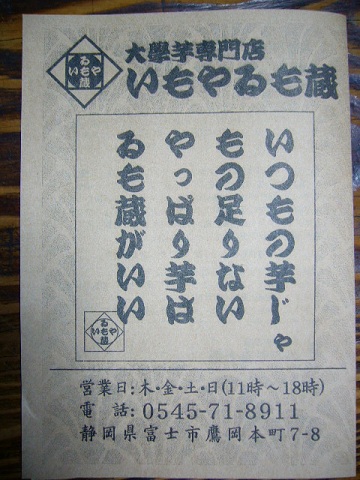 るも蔵
いもや
大學芋専門店
いもやるも蔵
いつもの芋じゃ
もの足りない
やっぱり芋は
るも蔵がいい
るも蔵
いもや
営業日:木・金・土・日(11時〜18時)
電　話: 0545-71-8911
静岡県富士市鷹岡本町7-8